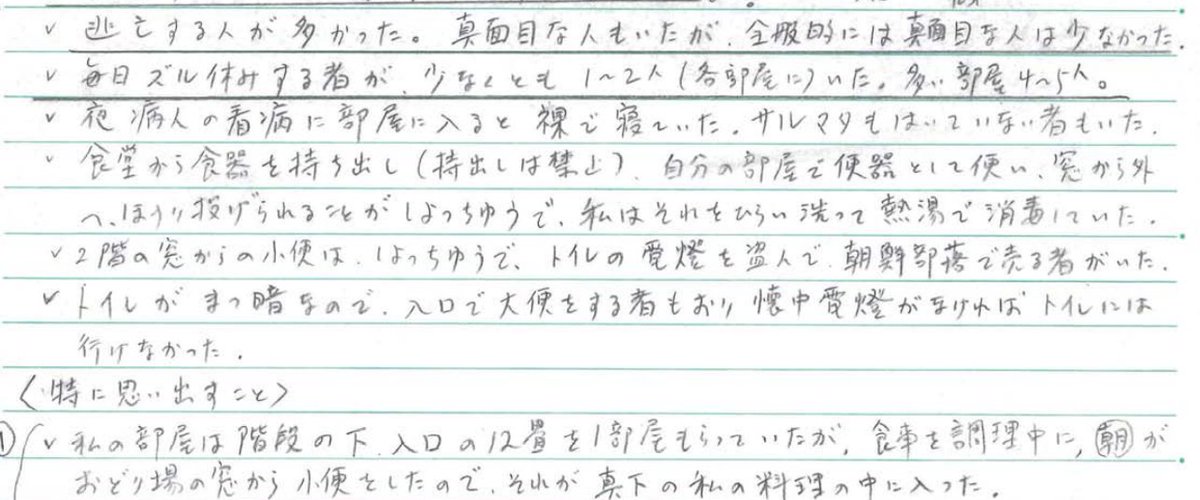 v 逃亡する人が多かった。真面目な人もいたが、全般的には真面目な人は少なかった。
v 毎日ズル休みする者が、少なくとも1~2人(各部屋に)いた。多い部屋4~5人。
v 夜病人の看病に部屋に入ると裸で寝ていた。サルマタもはいていない者もいた。
v 食堂から食器を持ち出し(持出しは禁止)、自分の部屋で便器として使い、窓から外
へ、ほうり投げられることがしょっちゅうで、私はそれをひろい洗って熱湯で消毒していた。
v 2階の窓からの小便は、しょっちゅうで、トイレの電燈を盗んで、朝鮮部落で売る者がいた。
v トイレがまっ暗なので、入口で大便をする者もおり懐中電燈がなければトイレには
行けなかった。
〈特に思い出すこと〉
① v 私の部屋は階段の下、入口の12畳を1部屋もらっていたが、食事を調理中に、㊥朝が
おどり場の窓から小便をしたので、それが真下の私の料理の中に入った。